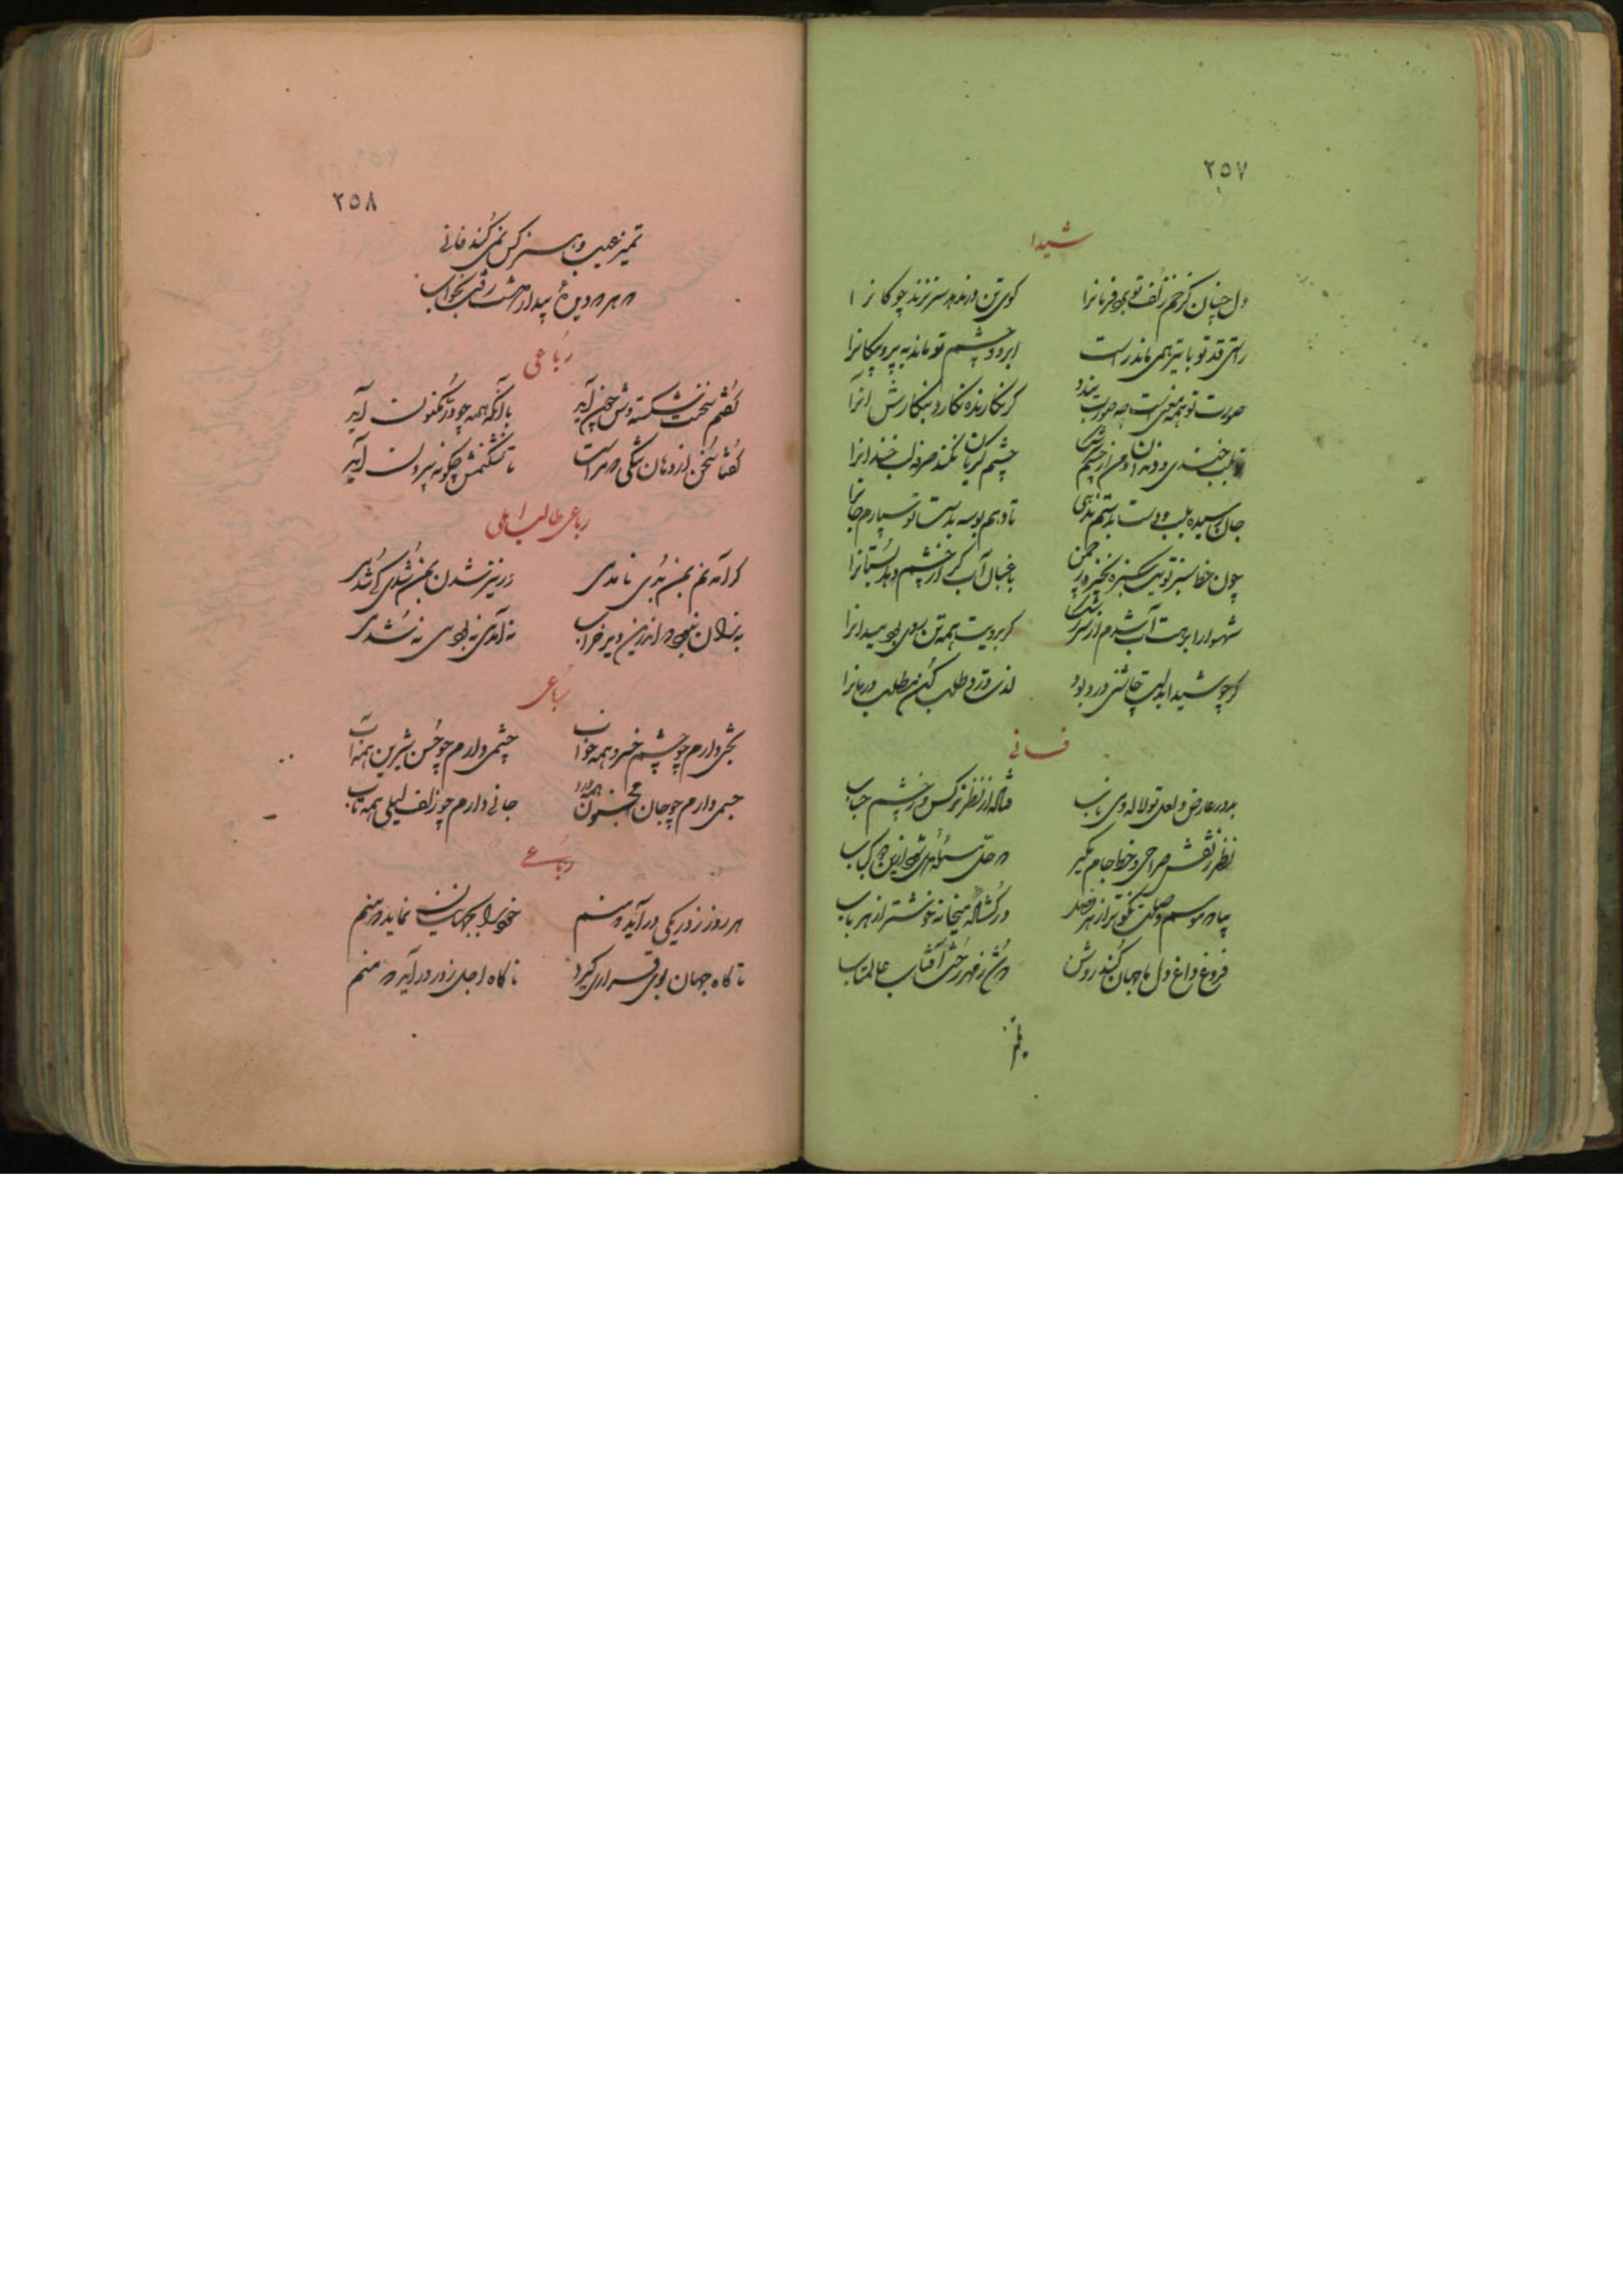 ٢٥٧
شیدا
دل چنان کز خم زلف تو بود فرمانرا کوی تن در ندهد سر نزند چوکانرا
راستی قد تو با تیر همی ماند راست ابرو و چشم تو ماند به پیکانرا
صورت تو همه معنیست چه صورت بندد کر نکارنده نکارد بنکارش آنرا
بلب خندی و من از چشم چشم کریان نکند صرفه لب خندانرا
جان رسیده بلب و دست بدستم ندهی تا دهم بوسه بدست تو سپارم جانرا
چون خط سبز تو یک سبزه نخیزد ز چمن باغبان آب کر از چشم دهد بستانرا
شهسوارا برهت آب شدم از سر کریه برویت همه تن بود میدانرا
کر چو شیدا بدلت چاشنی درد بود لذت درد طلب کن مطلب درمانرا
فانی
بدور عارض و لعل تو لاله و می ناب فتاده از نظر نرکس و ز چشم حباب
نظر ز نقش صراحی و خط جام مکیر که حل مسئله می شود ازین دو کتاب
بیا که موسم وصلت نکوتر از هر فصل در کشاده میخانه خوشتر از هر باب
فروغ داغ دل ما جهان کند روشن رخش آفتاب عالمتاب
تمیز
٢٥٨
تمیز عیب و هنر کس نمی کند فانی
که هر که دیده بیدار داشت رفت بخواب
رباعی
کفتم سخنت شکسته وش چون آید با آنکه همه چو در مکنون آید
کفتا سخن از دهان تنکی که مراست تا نشکنمش چکونه بیرون آید
رباعی طالب املی
کر آمدنم بمن بدی نامدمی ور نیز شدن بمن بدی کی شدمی
به زان نبدی که اندرین دیر خراب نه آمدمی نه بودمی نه شدمی
رباعی
بختی دارم چو چشم خسرو همه خواب چشمی دارم چو حسن شیرین همه آب
جسمی دارم چو جان مجنون همه درد جانی دارم چو زلف لیلی همه تاب
رباعی
هر روز ز زور یکی در آید که منم خود را بجهان نماید که منم
تا کاه جهان بوی قراری کیرد ناکاه اجل ز در در آید که منم